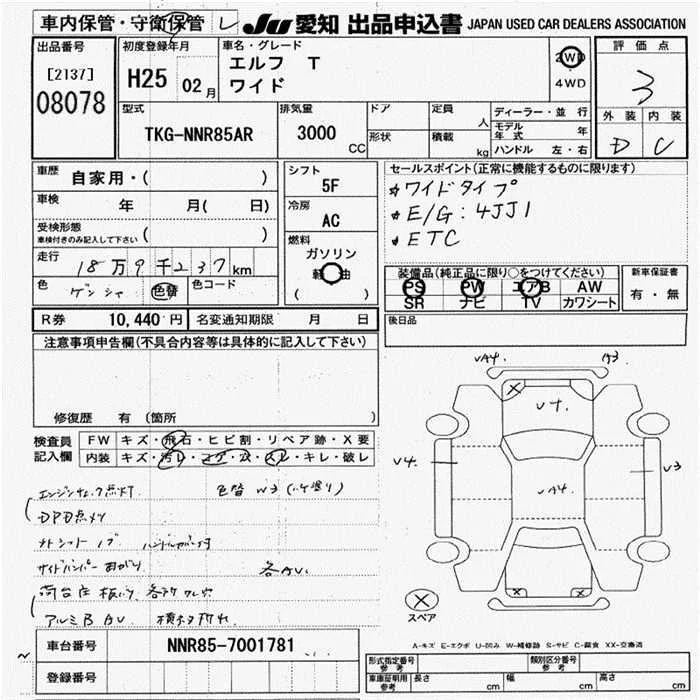 車内保管・守衛保管 レ JU 愛知 出品申込書 JAPAN USED CAR DEALERS ASSOCIATION
出品番号 初度登録年月 車名・グレード 評価点
[2137] H25 02月 エルフ T 2WD 3
08078 ワイド 4WD
外装 内装
型式 排気量 ドア 定員 人 ディーラー・並行 D C
TKG-NNR85AR 3000 CC 形状 積載 kg モデル年式 年
ハンドル 左・右
車歴 自家用・( ) シフト 5F セールスポイント(正常に機能するものに限ります)
車検 年 月( 日) 冷房 AC *ワイドタイプ
受検形態 ( ) *E/G:4JJ1
車検付きのみ記入して下さい 燃料 *ETC
走行 18万9千237km ガソリン
軽・油
色 ゲンシャ 色替 色コード ( )
装備品(純正品に限り○をつけてください) 新車保証書
PS PW エアB AW 有・無
SR ナビ TV カワシート
R券 10,440円 名変通知期限 月 日 後日品
注意事項申告欄(不具合内容等は具体的に記入して下さい)
修復歴 有 (箇所 )
検査員 FW キズ・飛石・ヒビ割・リペア跡・X要
記入欄 内装 キズ・汚レ・コゲ・穴・スレ・キレ・破レ
VA4. A3
V7.
V4 VA4. V3
色替 W3(ハケ塗り)
DPD点メツ
各AU.
アルミB AU
スペア
A-キズ E-エクボ U-凹み W-補修跡 S-サビ C-腐食 XX-交換済
車台番号 NNR85-7001781
登録番号
形式指定番号 参考 類別区分番号 参考
車庫証明用 参考 長さ cm 幅 cm 高さ cm